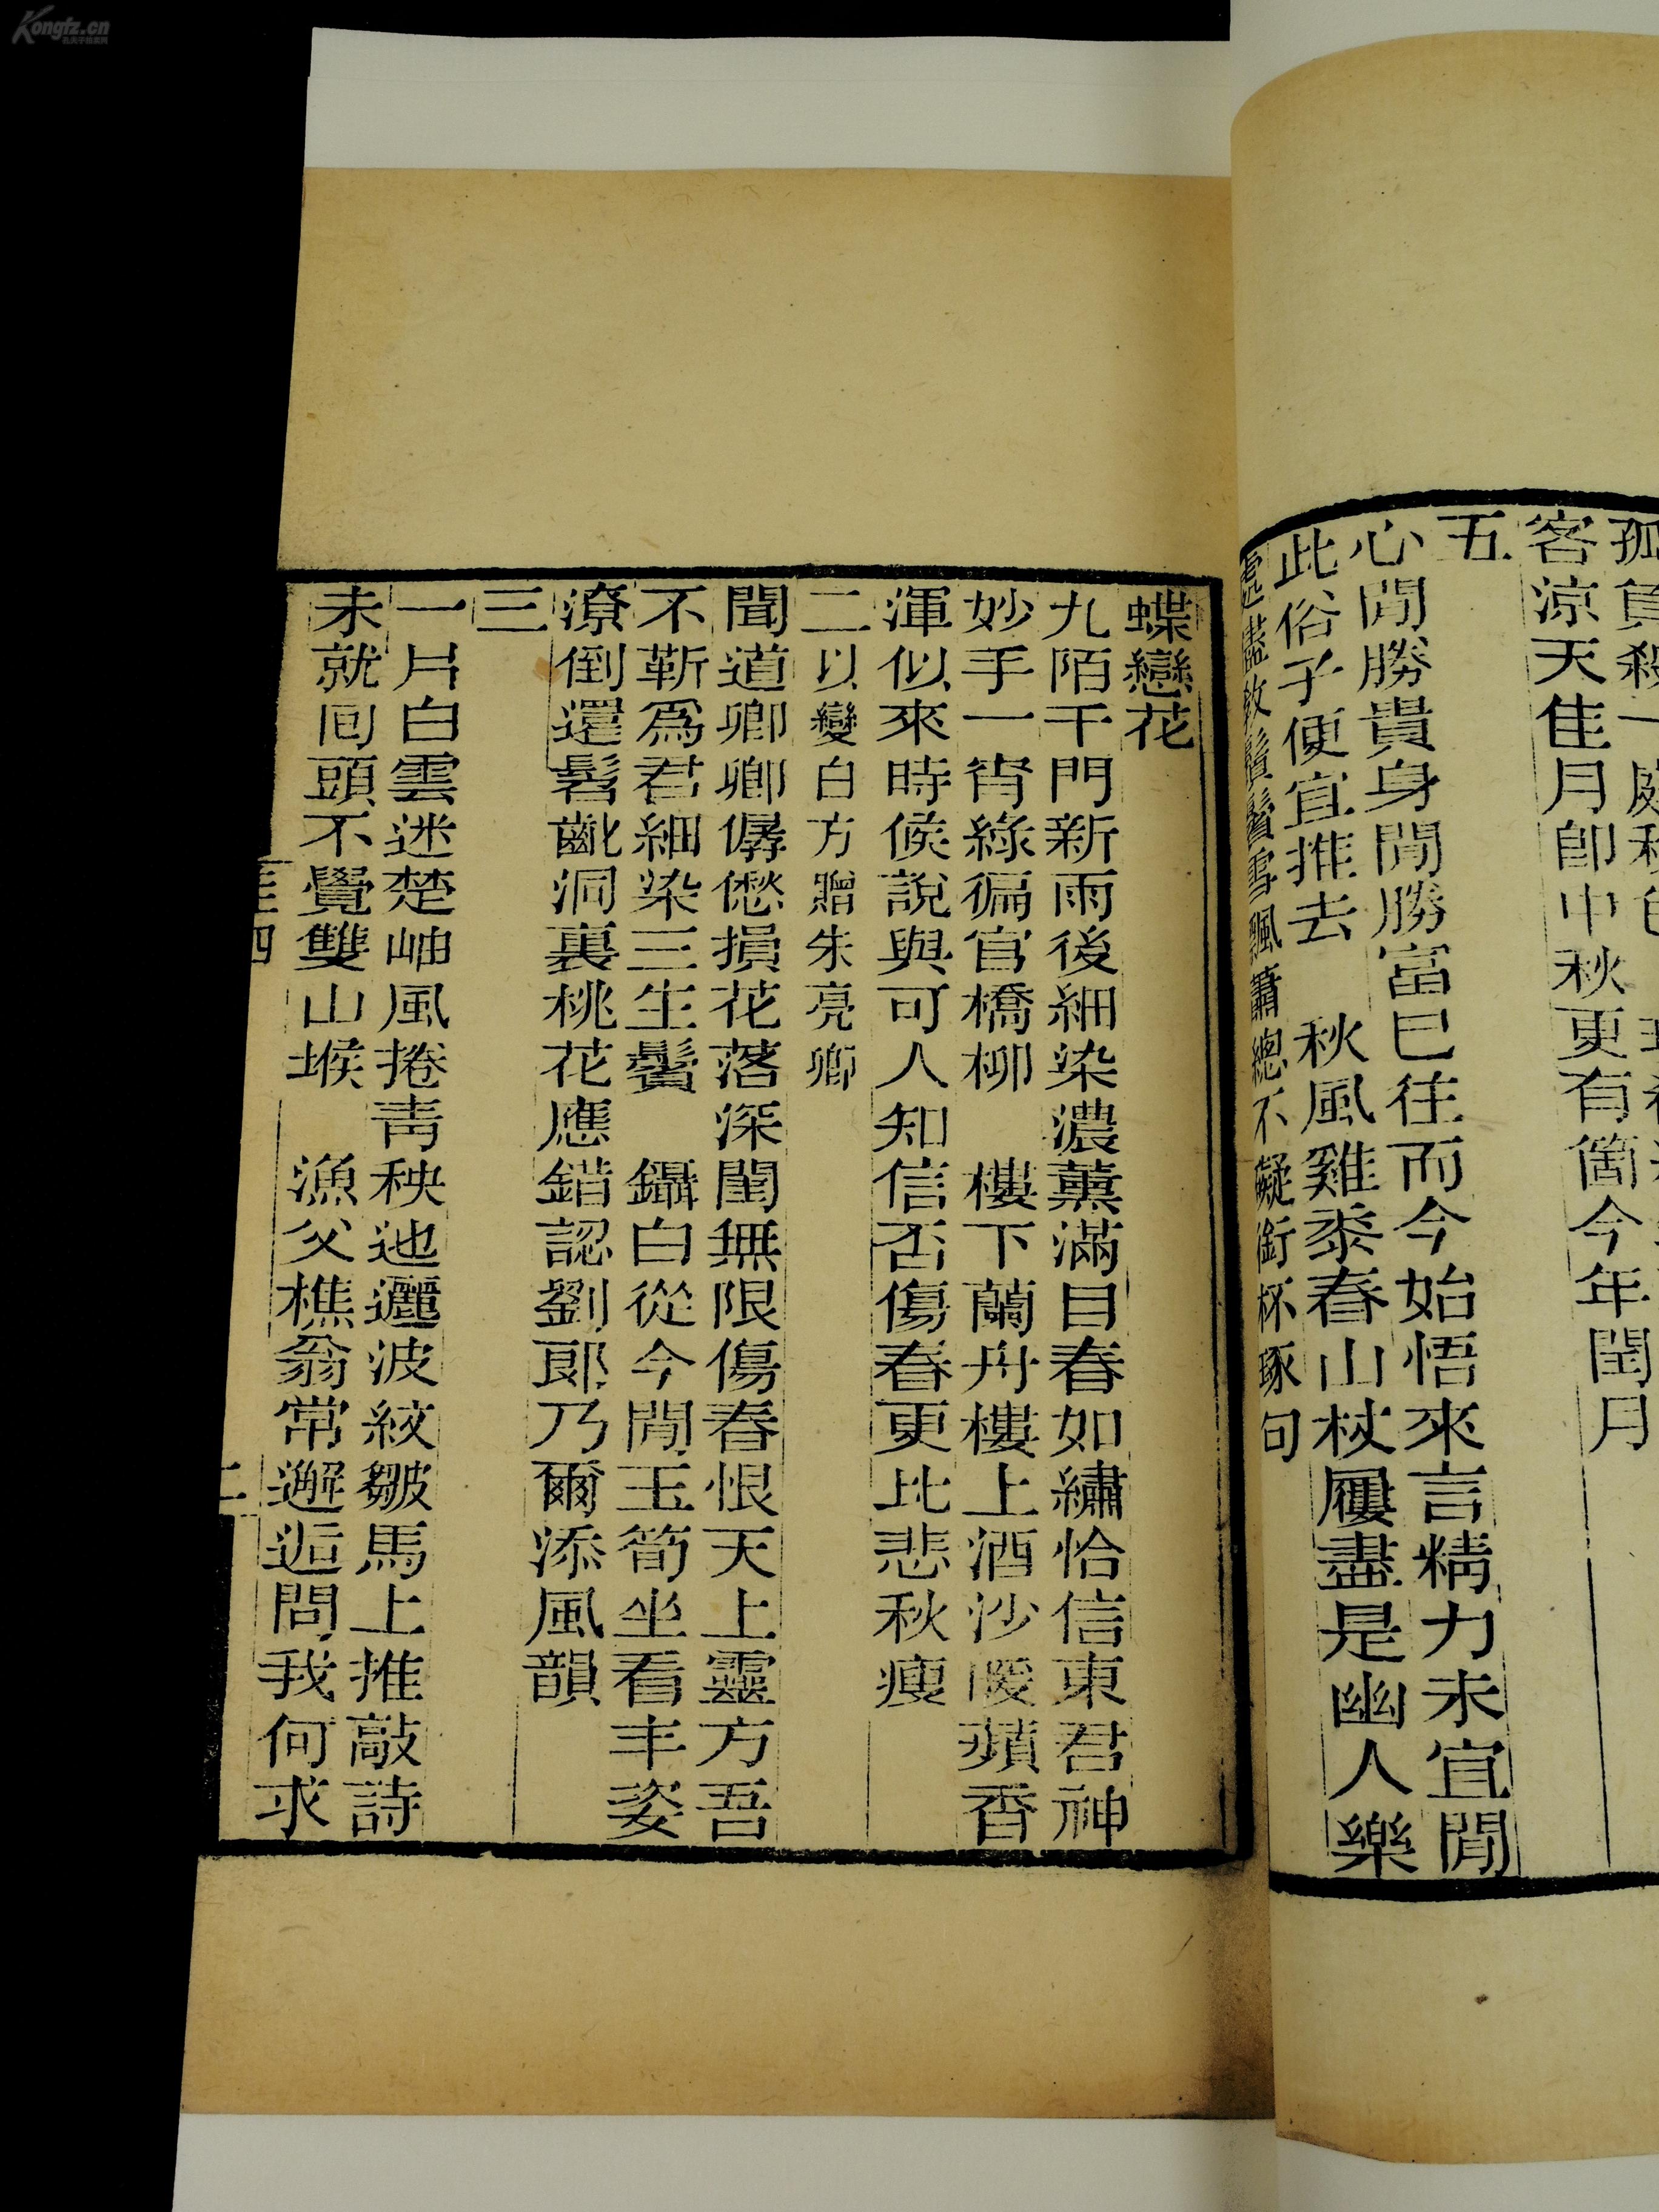 客涼天佳月卽中秋更有箇今年閏月
五
心閒勝貴身閒勝富已往而今始悟來言精力未宜閒
此俗子便宜推去　秋風雞黍春山杖屨盡是幽人樂
處儘教鬢雪飄蕭總不礙銜杯琢句
蝶戀花
九陌千門新雨後細染濃薰滿目春如繡恰信東君神
妙手一宵綠徧官橋柳　樓下蘭舟樓上酒沙暖蘋香
渾似來時候說與可人知信否傷春更比悲秋瘦
二以變白方贈朱亮卿
聞道卿卿僝僽損花落深閨無限傷春恨天上靈方吾
不靳爲君細染三生鬢　鑷白從今閒玉筍坐看丰姿
潦倒還髫齔洞裏桃花應錯認劉郞乃爾添風韻
三
一片白雲迷楚岫風捲靑秧迤邐波紋皺馬上推敲詩
未就囘頭不覺雙山堠　漁父樵翁常邂逅問我何求
四
二
Kongfz.cn